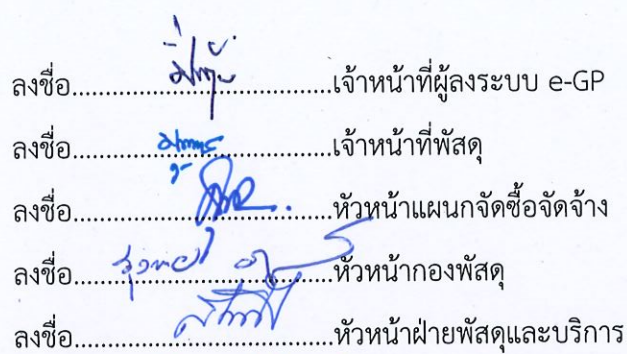 ลงชื่อ.................................เจ้าหน้าที่ผู้ลงระบบ e-GP
ลงชื่อ.................................เจ้าหน้าที่พัสดุ
ลงชื่อ.................................หัวหน้าแผนกจัดซื้อจัดจ้าง
ลงชื่อ.................................หัวหน้ากองพัสดุ
ลงชื่อ.................................หัวหน้าฝ่ายพัสดุและบริการ